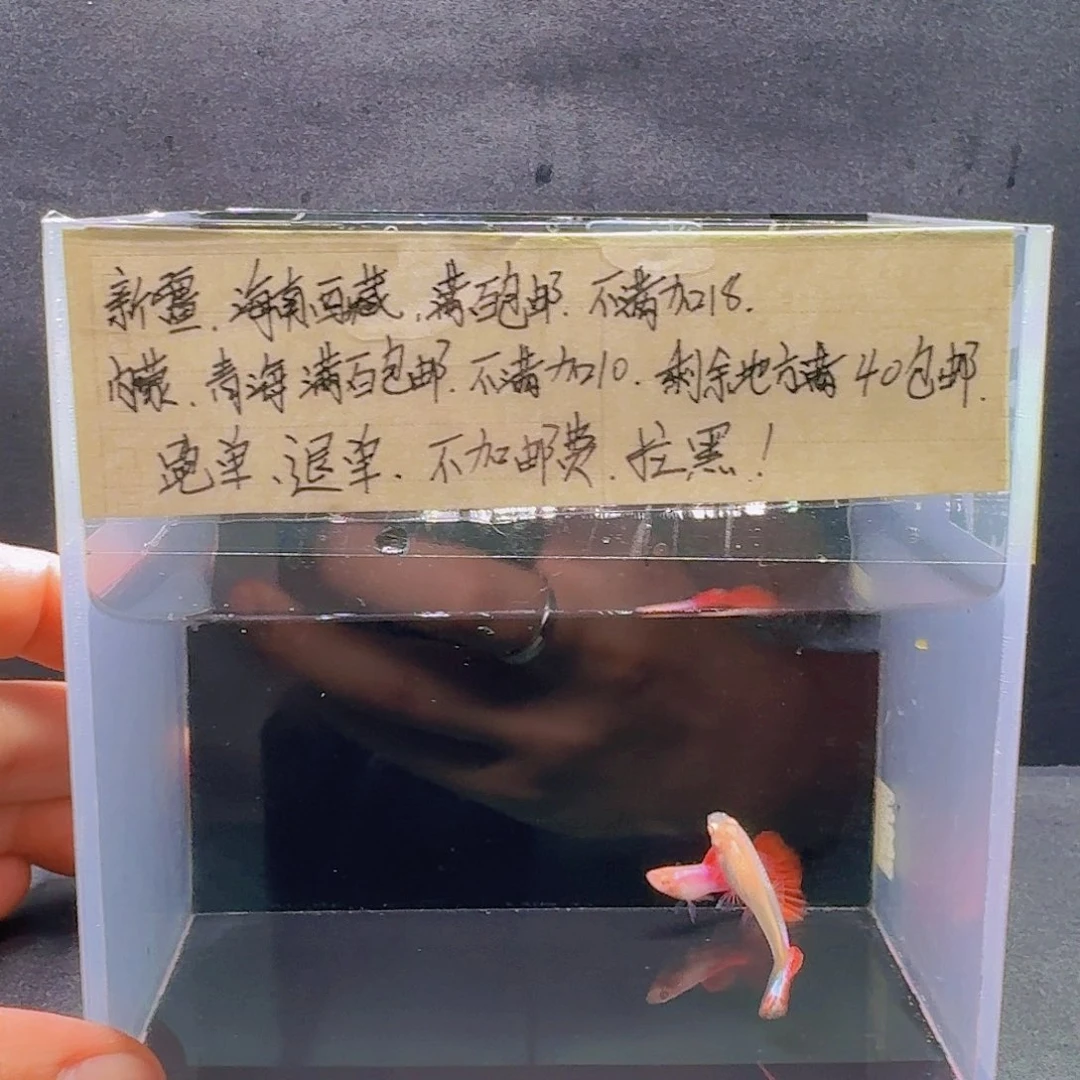 新疆.海南西藏.满百包邮.不满加18.
内蒙.青海满百包邮.不满加10.剩余地方满40包邮.
跑单、退单.不加邮费.拉黑!